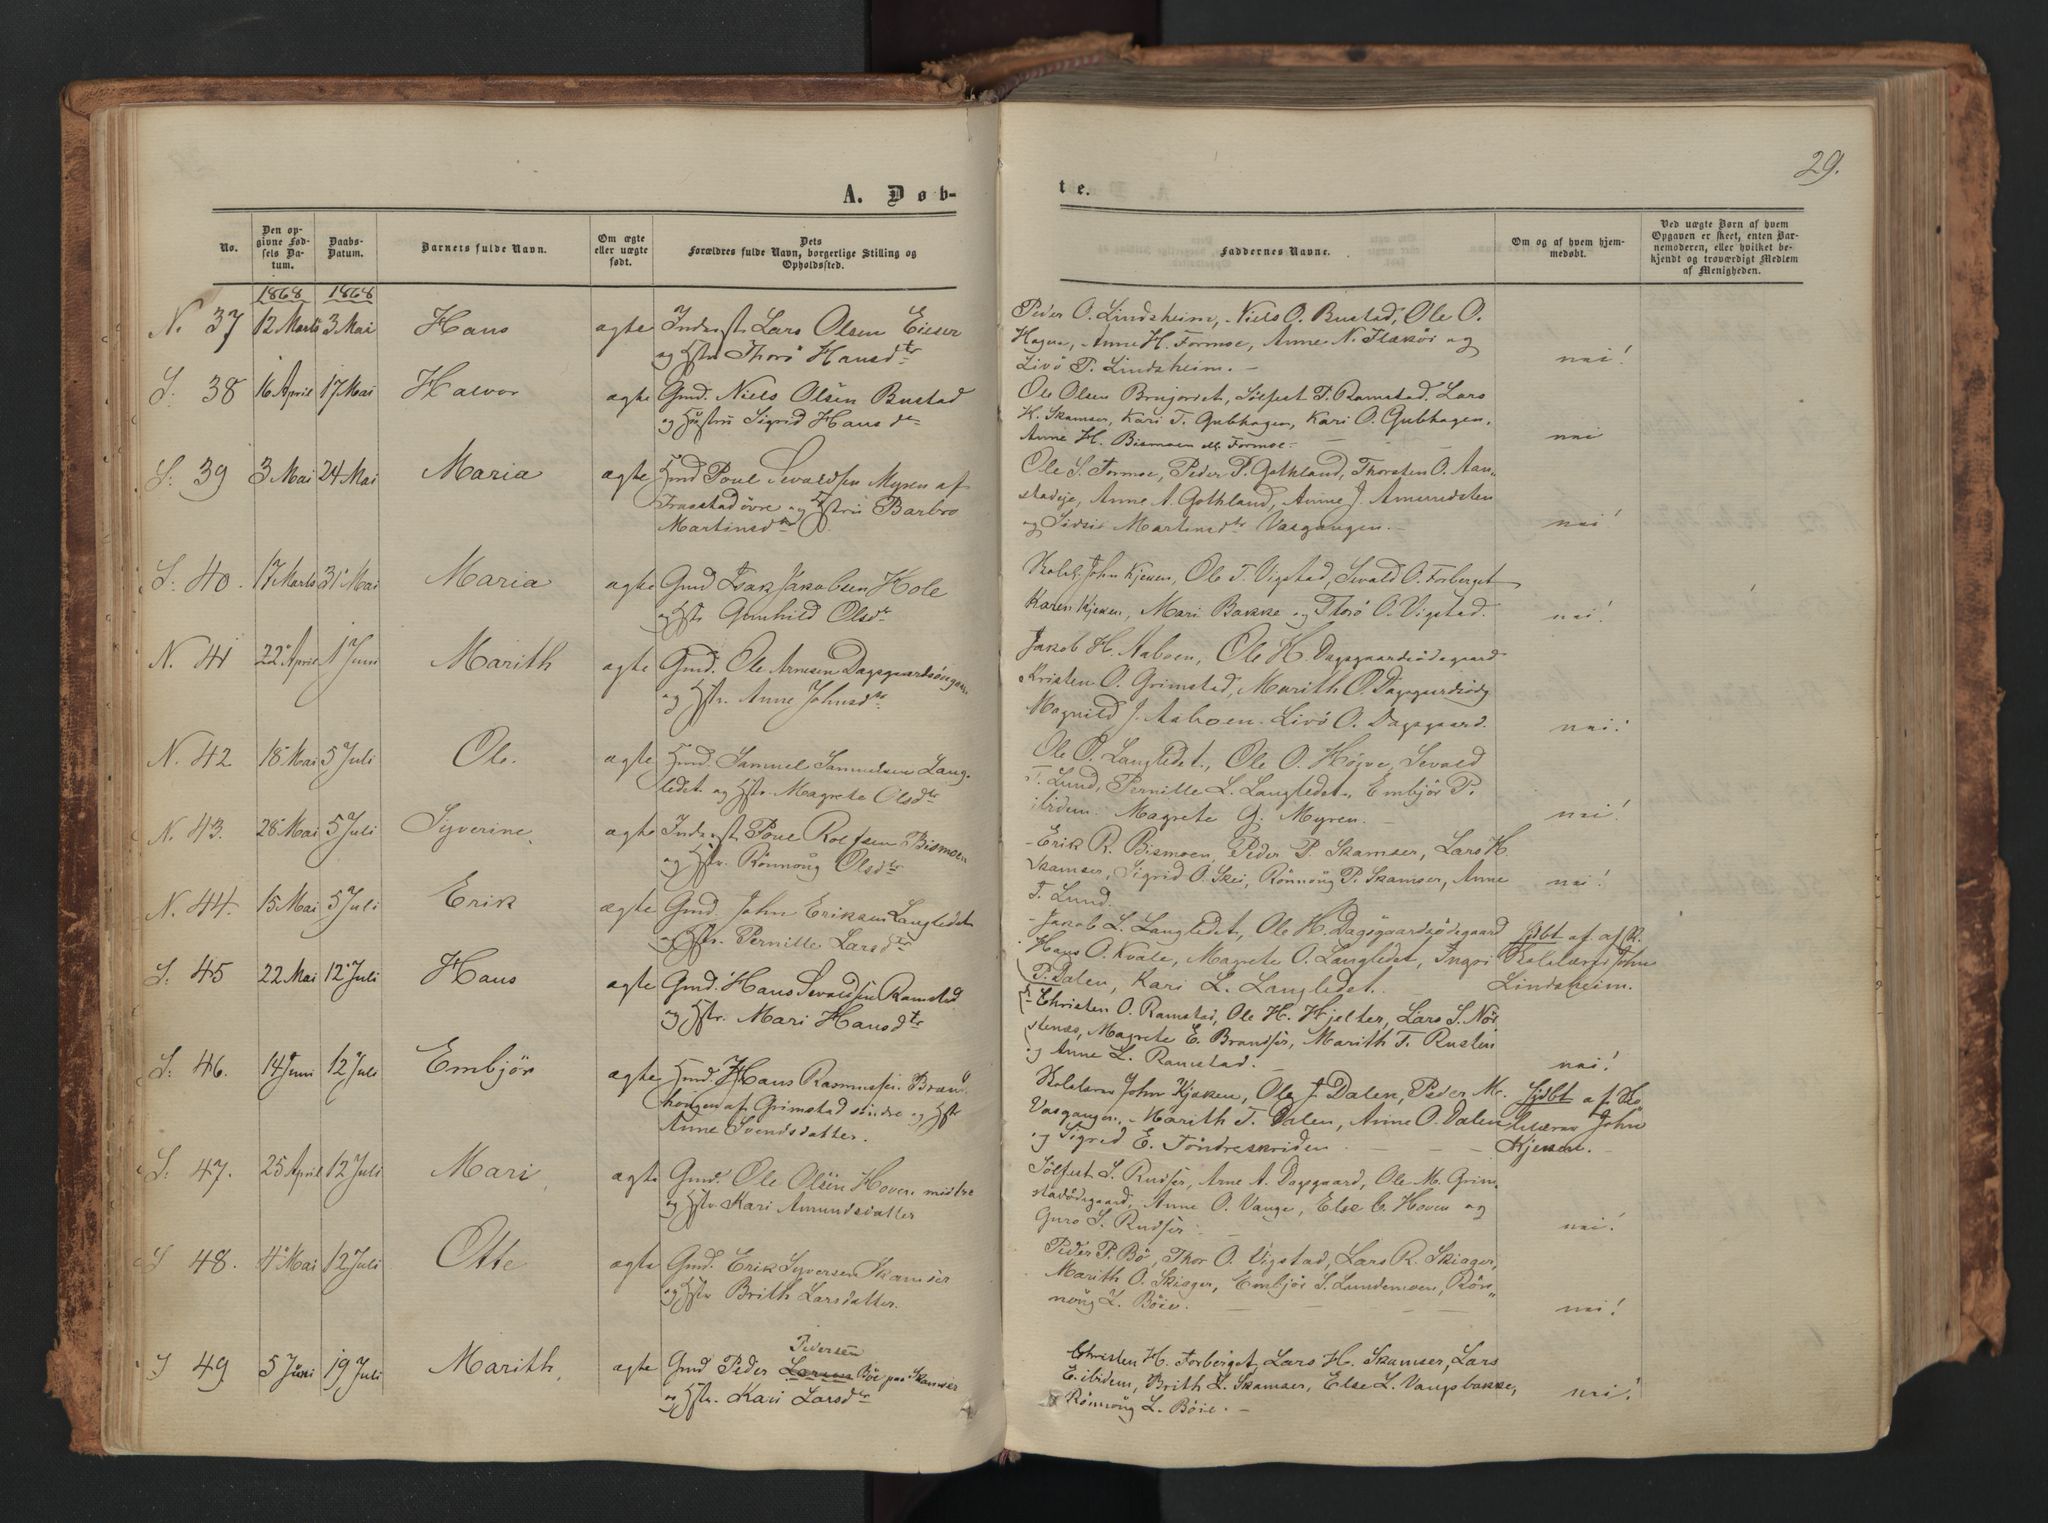 29.
A. Døb-
te.
No.
Den op-
givne Fød-
sels Da-
tum.
Daabs-
Datum.
Barnets fulde Navn.
Om ægte
eller uægte
født.
Dets
Forældres fulde Navn, borgerlige Stilling og
Opholdssted.
Faddernes Navne.
Om og af hvem hjem-
medøbt.
Ved uægte Børn af hvem
Opgaven er skeet, enten Bar-
nemoderen, eller hvilket be-
kjendt og troværdigt Medlem
af Menigheden.
1868 1868
N. 37 12 Marts 3 Mai Hans ægte Inderst Lars Olsen
og Hstr Thorö Hansdtr
Peder O. Lindsheim, Niels O. Bustad, Ole O.
Hagen, Anne H. Formoe, Anne N. Flæköi og
Livö P. Lindsheim. - nei!
S. 38 16 April 17 Mai Halvor ægte Gmd. Niels Olsen Bustad
og Hustru Sigrid Hansdtr
Ole Olsen Brujordet, Sölfest T. Ramstad, Lars
H. Skamser, Kari T. Gubhagen, Kari O. Gubhagen,
Anne H. Bismoen ell. Formoe. - nei
S. 39 3 Mai 24 Mai Maria ægte Hmd Poul Sevaldsen Myren af
øvre og Hstru Barbro
Martinsdtr
Ole S. Formoe, Peder P. Gothland, Thorsten O. Aan-
stadeje, Anne A. Gothland, Anne J.
og Sidsel Martinsdtr Vasgangen. - nei!
S. 40. 17 Marts 31 Mai Maria ægte Gmd Isak Jakobsen Hole
og Hstr Gunhild Olsdtr
Skolel. John Kjeken, Ole T. Vigstad, Sevald O. Forberget
Karen Kjeken, Mari Bakke og Thorö O. Vigstad. nei!
N. 41 22 April 1 Juni Marith ægte Gmd. Ole Arnesen
og Hstr. Anne Johnsdtr
Jakob H. Aaboen, Ole H. Dagsgaardsödegaard
Kristen O. Grimstad, Marith O. Dagsgaardsödg
Magnild J. Aaboen. Livö O. Dagsgaard. nei!
N. 42 18 Mai 5 Juli Ole. ægte Hmd. Samuel Samuelsen Lang-
ledet og Hstr. Magrete Olsdtr
Ole O. Langledet, Ole O. Höive, Sevald
T. Lund, Pernille L. Langledet, Embjör P.
ibidem. Magrete G. Myren. - nei!
N. 43. 28 Mai 5 Juli Syverine, ægte Inderst Poul Rolfsen Bismoen
og Hstr. Rönnoüg Olsdtr
Erik R. Bismoen, Peder P. Skamser, Lars H.
Skamser, Sigrid O. Skei, Rönnoüg P. Skamser, Anne
T. Lund. nei!
N. 44. 15 Mai 5 Juli Erik ægte Gmd. John Eriksen Langledet
og Hstr. Pernille Larsdtr
Jakob L. Langledet, Ole H. Dagsgaardsödegaard
Hans O. Kvale, Magrete O. Langledet, Ingri
P. Dalen, Kari L. Langledet.
hjdbt af
Skolelærer John
Lindsheim.
S. 45 22 Mai 12 Juli Hans ægte Gmd. Hans Sevaldsen Ramstad
og Hstr. Mari Hansdtr
Christen O. Ramstad, Ole H. Hjelter, Lars S. Nör
stenæs, Magrete E. Brandser, Marith T. Rusten
og Anne L. Ramstad. nei!
S. 46. 14 Juni 12 Juli Embjör ægte Hmd. Hans Rasmussen Bræn
haugen af Grimstad söndre og Hstr
Anne Svendsdatter.
Skolelærer John Kjeken, Ole J. Dalen, Peder M.
Vasgangen, Marith T. Dalen, Anne O. Dalen
og Sigrid E. Töndreskriden
hjdbt af Sko
lelærer John
Kjeken. -
S. 47. 25 April 12 Juli Mari, ægte Gmd. Ole Olsen Hoven midtre
og Hstr. Kari Amundsdatter
Sölfest S. Rudser, Arne A. Dagsgaard, Ole M. Grim
stadödegaard, Anne O. Vange, Else C. Hoven og
Guro S. Rudser. - nei!
S 48. 4 Mai 12 Juli Otte ægte Gmd. Erik Syversen Skamser
og Hstr Brith Larsdatter.
Peder P. Bö, Thor O. Vigstad, Lars R. Skiager,
Marith O. Skiager, Embjör S. Lundemoen, Rön-
noüg L. Böie. nei!
S 49 5 Juni 19 Juli Marith, ægte Gmd Peder Larsen Pedersen Böe paa Skamser
og Hstr. Kari Larsdtr
Christen H. Forberget, Lars H. Skamser, Lars
E. ibidem, Brith L. Skamser, Else L. Vangsbakke,
Rönnoüg L. Böie. - nei!